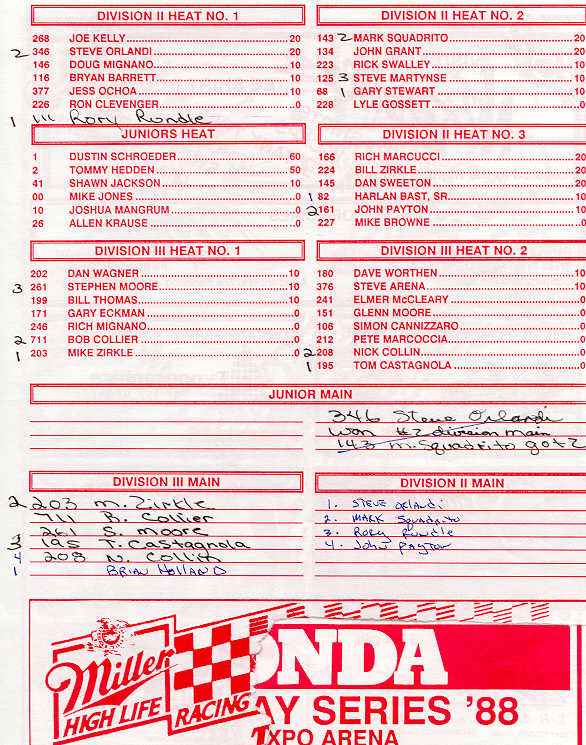 DIVISION II HEAT NO. 1
268 JOE KELLY 20
2 346 STEVE ORLANDI 20
146 DOUG MIGNANO 10
116 BRYAN BARRETT 10
377 JESS OCHOA 0
226 RON CLEVENGER 0
1 111 Rory Rundle
DIVISION II HEAT NO. 2
143 2 MARK SQUADRITO 20
134 JOHN GRANT 20
223 RICK SWALLEY 10
125 3 STEVE MARTYNSE 10
68 1 GARY STEWART 10
228 LYLE GOSSETT 0
JUNIORS HEAT
1 DUSTIN SCHROEDER 60
2 TOMMY HEDDEN 50
41 SHAWN JACKSON 10
00 MIKE JONES 0
10 JOSHUA MANGRUM 0
26 ALLEN KRAUSE 0
DIVISION II HEAT NO. 3
166 RICH MARCUCCI 20
224 BILL ZIRKLE 20
145 DAN SWEETON 20
1 82 HARLAN BAST, SR 10
2 161 JOHN PAYTON 10
227 MIKE BROWNE 0
DIVISION III HEAT NO. 1
202 DAN WAGNER 10
3 261 STEPHEN MOORE 10
199 BILL THOMAS 10
171 GARY ECKMAN 0
246 RICH MIGNANO 0
2 711 BOB COLLIER 0
1 203 MIKE ZIRKLE 0
DIVISION III HEAT NO. 2
180 DAVE WORTHEN 10
376 STEVE ARENA 10
241 ELMER McCLEARY 0
151 GLENN MOORE 0
106 SIMON CANNIZZARO 0
212 PETE MARCOCCIA 0
2 208 NICK COLLIN 0
1 195 TOM CASTAGNOLA 0
JUNIOR MAIN
346 Steve Orlandi
won #2 division main
143 m. Squadrito got 2
DIVISION III MAIN
2 203 m. Zirkle
711 B. Collier
261 S. moore
3 195 T. Castagnola
4 208 N. Collin
1 BRIAN HOLLAND
DIVISION II MAIN
1. STEVE ORLANDI
2. MARK Squadrito
3. RORY Rundle
4. John PAYTON
Miller
HIGH LIFE RACING
ONDA
AY SERIES '88
XPO ARENA